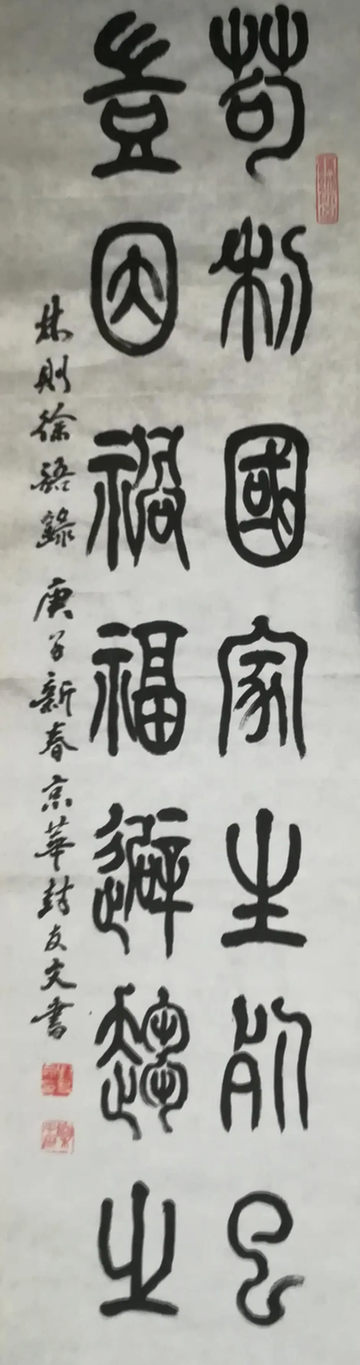 苟利國家生死以
豈因禍福避趨之
林则徐語錄 庚子新春京華封友文書